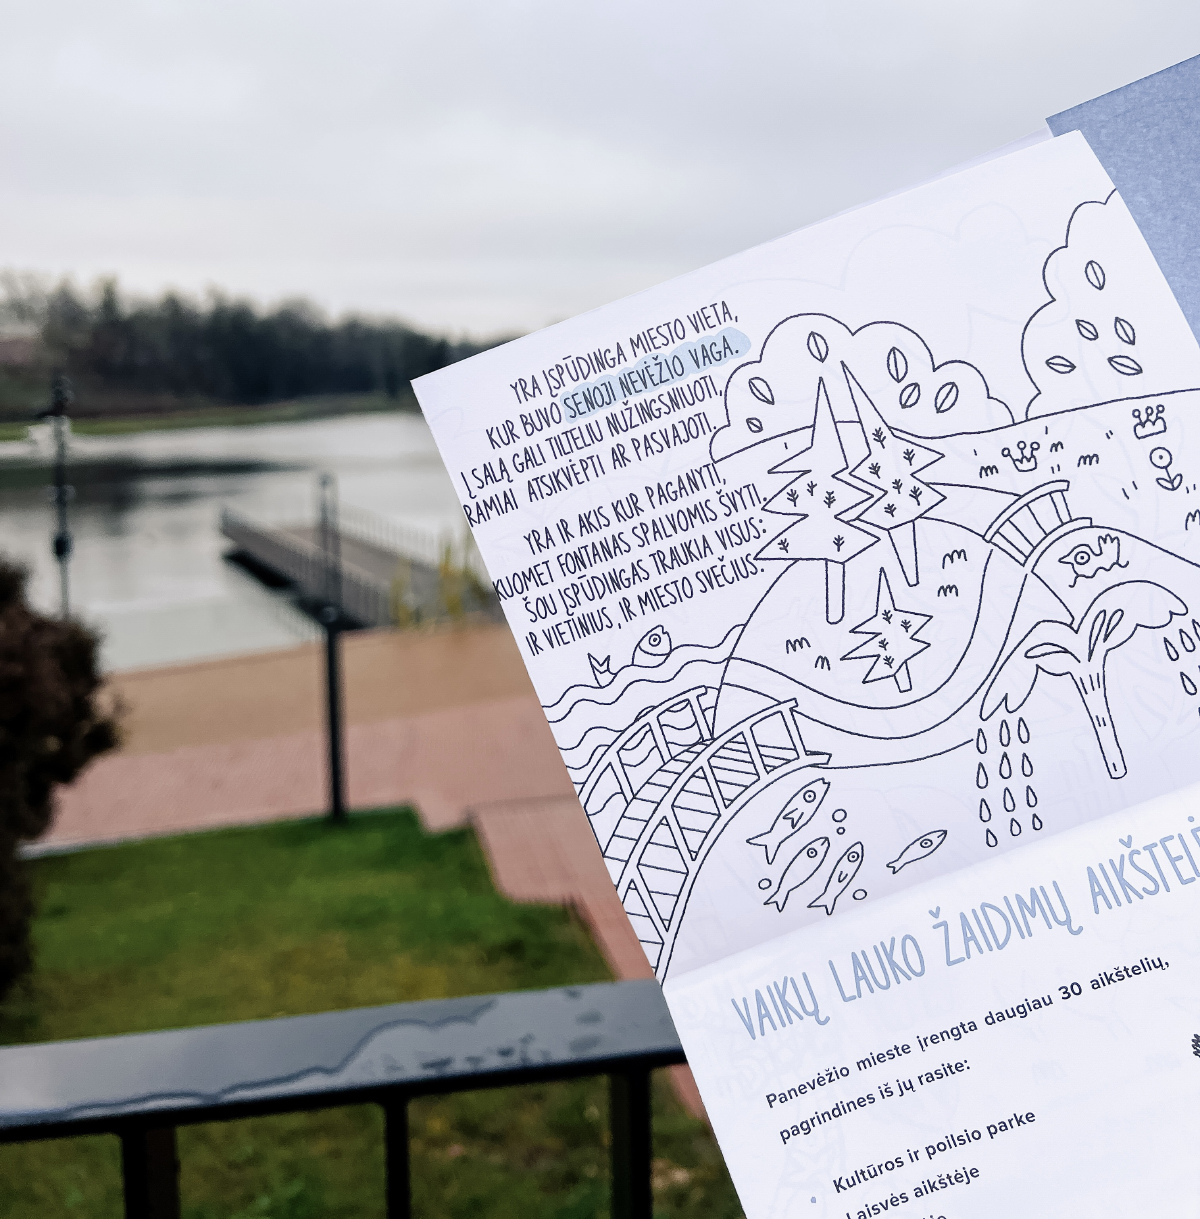 YRA ĮSPŪDINGA MIESTO VIETA,
KUR BUVO SENOJI NEVĖŽIO VAGA.
Į SALĄ GALI TILTELIU NUŽINGSNIUOTI,
RAMIAI ATSIKVĖPTI AR PASVAJOTI.
YRA IR AKIS KUR PAGANYTI,
KUOMET FONTANAS SPALVOMIS ŠVYTI.
ŠOU ĮSPŪDINGAS TRAUKIA VISUS:
IR VIETINIUS, IR MIESTO SVEČIUS.
VAIKŲ LAUKO ŽAIDIMŲ
Panevėžio mieste įrengta daugiau 30 aikštelių,
pagrindines iš jų rasite:
Kultūros ir poilsio parke
Laisvės aikštėje